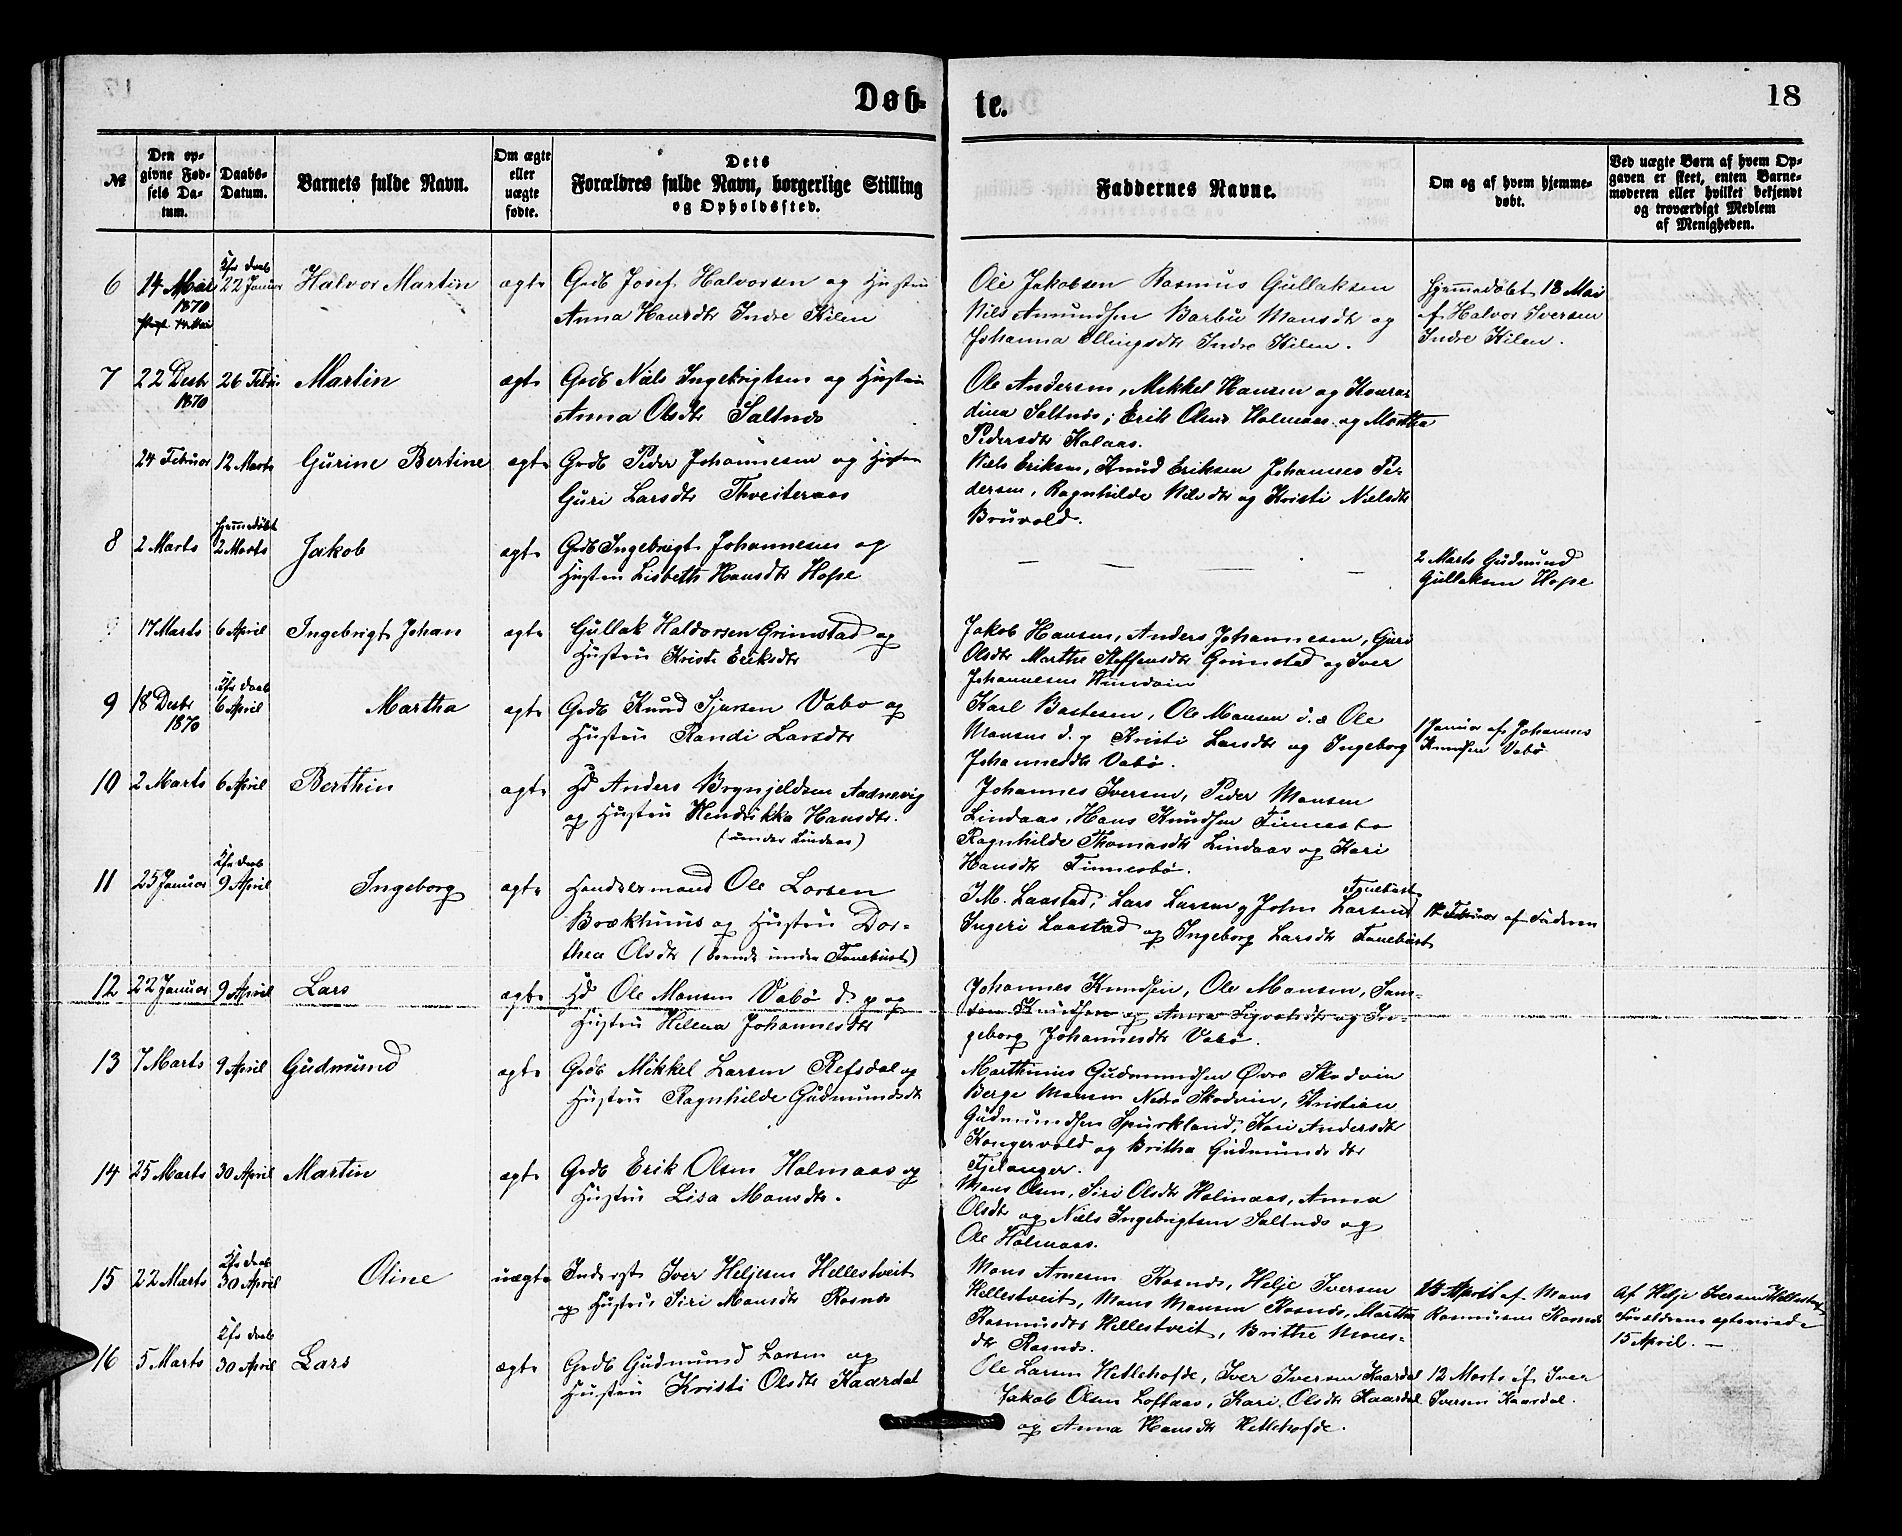 Døb-
te.
18
№
Den op-
givne Fød-
sels Da-
tum.
Daabs-
Datum.
Barnets fulde Navn.
Om ægte
eller
uægte
fødte.
Dets
Forældres fulde Navn, borgerlige Stilling
og Opholdssted.
Faddernes Navne.
Om og af hvem hjemme-
døbt.
Ved uægte Børn af hvem Op-
gaven er skeet, enten Barne-
moderen eller hvilket bekjendt
og troværdigt Medlem
af Menigheden.
6 14 Mai 1870 22 Januar Halvor Martin ægte
Grdb Josef Halvorsen og Hustru
Anna Hansdtr Indre Kilen
Ole Jakobsen Rasmus Gullaksen
Nils Amundsen Barbu Monsdtr og
Johanna Ellingsdtr Indre Kilen.
Hjemmedøbt 18 Mai
af Halvor Iversen
Indre Kilen.
7 22 Desbr 1870 26 Febr Martin ægte
Grdb Niels Ingebrigtsen og Hustru
Anna Olsdtr Saltnes
Ole Andersen, Mikkel Hansen og Konra-
dina Saltnes, Erik Olsen Holmaas og Martha
Pedersdtr Kolaas.
24 Februar 12 Marts Gurine Bertine ægte
Grdb Peder Johannesen og Hustru
Guri Larsdtr Thveiteraas
Niels Eriksen, Knud Eriksen Johannes Pe-
dersen, Ragnhilde Nilsdtr og Kristi Nielsdtr
Bruvold.
8 2 Marts Hjemmedøbt 2 Marts Jakob ægte
Grdb Ingebrigt Johannesen og
Hustru Lisbeth Hansdtr Hope
2 Marts Gudmund
Gullaksen Hope
17 Marts 6 April Ingebrigt Johan ægte
Gullak Haldorsen Grimstad og
Hustru Kristi Eriksdtr
Jakob Hansen, Anders Johannesen, Guri
Olsdtr Marthe Steffensdtr Grimstad og Iver
Johannesen
9 18 Desbr 1870 6 April Martha ægte
Grdb Knud Sjursen Vabø og
Hustru Randi Larsdtr
Karl Bastesen, Ole Monsen d. æ Ole
Monsen d. y Kristi Larsdtr og Ingeborg
Johannesdtr Vabø.
1 Januar af Johannes
Knudsen Vabø
10 2 Marts 6 April Berthin ægte
Hd Anders Brynjeldsen Aadnevig
og Hustru Hendrikka Hansdtr.
(under Lindaas)
Johannes Iversen, Peder Monsen
Lindaas, Hans Knudsen Finnesbø
Ragnhilde Thomasdtr Lindaas og Kari
Hansdtr Finnesbø.
11 25 Januar 9 April Ingeborg ægte
Handelsmand Ole Larsen
Brækhuus og Hustru Dor-
thea Olsdtr (boende under Fanebust)
I. M. Laastad, Lars Larsen og John Larsen Fanebust
Ingeri Laastad og Ingeborg Larsdtr Fanebust
12 Februar af Faderen
12 22 Januar 9 April Lars ægte
Hd Ole Monsen Vabø d. y og
Hustru Helena Johannesdtr
Johannes Knudsen, Ole Monsen, Sam-
sen Knudsen og Anna Sigvatsdtr og In-
geborg Johannesdtr Vabø.
13 7 Marts 9 April Gudmund ægte
Grdb Mikkel Larsen Refsdal og
Hustru Ragnhilde Gudmundsdtr
Marthinus Gudmundsen Øvre Skodvin
Berge Monsen Nedre Skodvin, Kristian
Gudmundsen Spurkland, Kari Andersdtr
Kongervold og Britha Gudmundsdtr
Fjelanger.
14 25 Marts 30 April Martin ægte
Grdb Erik Olsen Holmaas og
Hustru Lisa Monsdtr.
Mons Olsen, Siri Olsdtr Holmaas, Anna
Olsdtr og Niels Ingebrigtsen Saltnes og
Ole Holmaas.
15 22 Marts 30 April Oline uægte
Inderst Iver Heljesen Hellestveit
og Hustru Siri Monsdtr Rosnes
Mons Arnesen Rosnes, Helje Iversen
Hellestveit, Mons Monsen Rosnes, Martha
Rasmusdtr Hellestveit, Brithe Mons-
dtr Rosnes.
13 April af Mons
Rasmusen Rosnes
Af Helje Iversen Hellestveit
Forældrene ægteviede
15 April. —
16 5 Marts 30 April Lars ægte
Grdb Gudmund Larsen og
Hustru Kristi Olsdtr Kaardal
Ole Larsen Hetlehofde, Iver Iversen Kaardal
Jakob Olsen Loftaas, Kari Olsdtr Kaardal
og Anna Hansdtr Hetlehofde.
12 Marts af Iver
Iversen Kaardal.